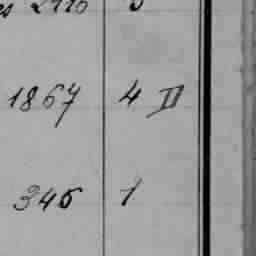 1867 4 II
345 1